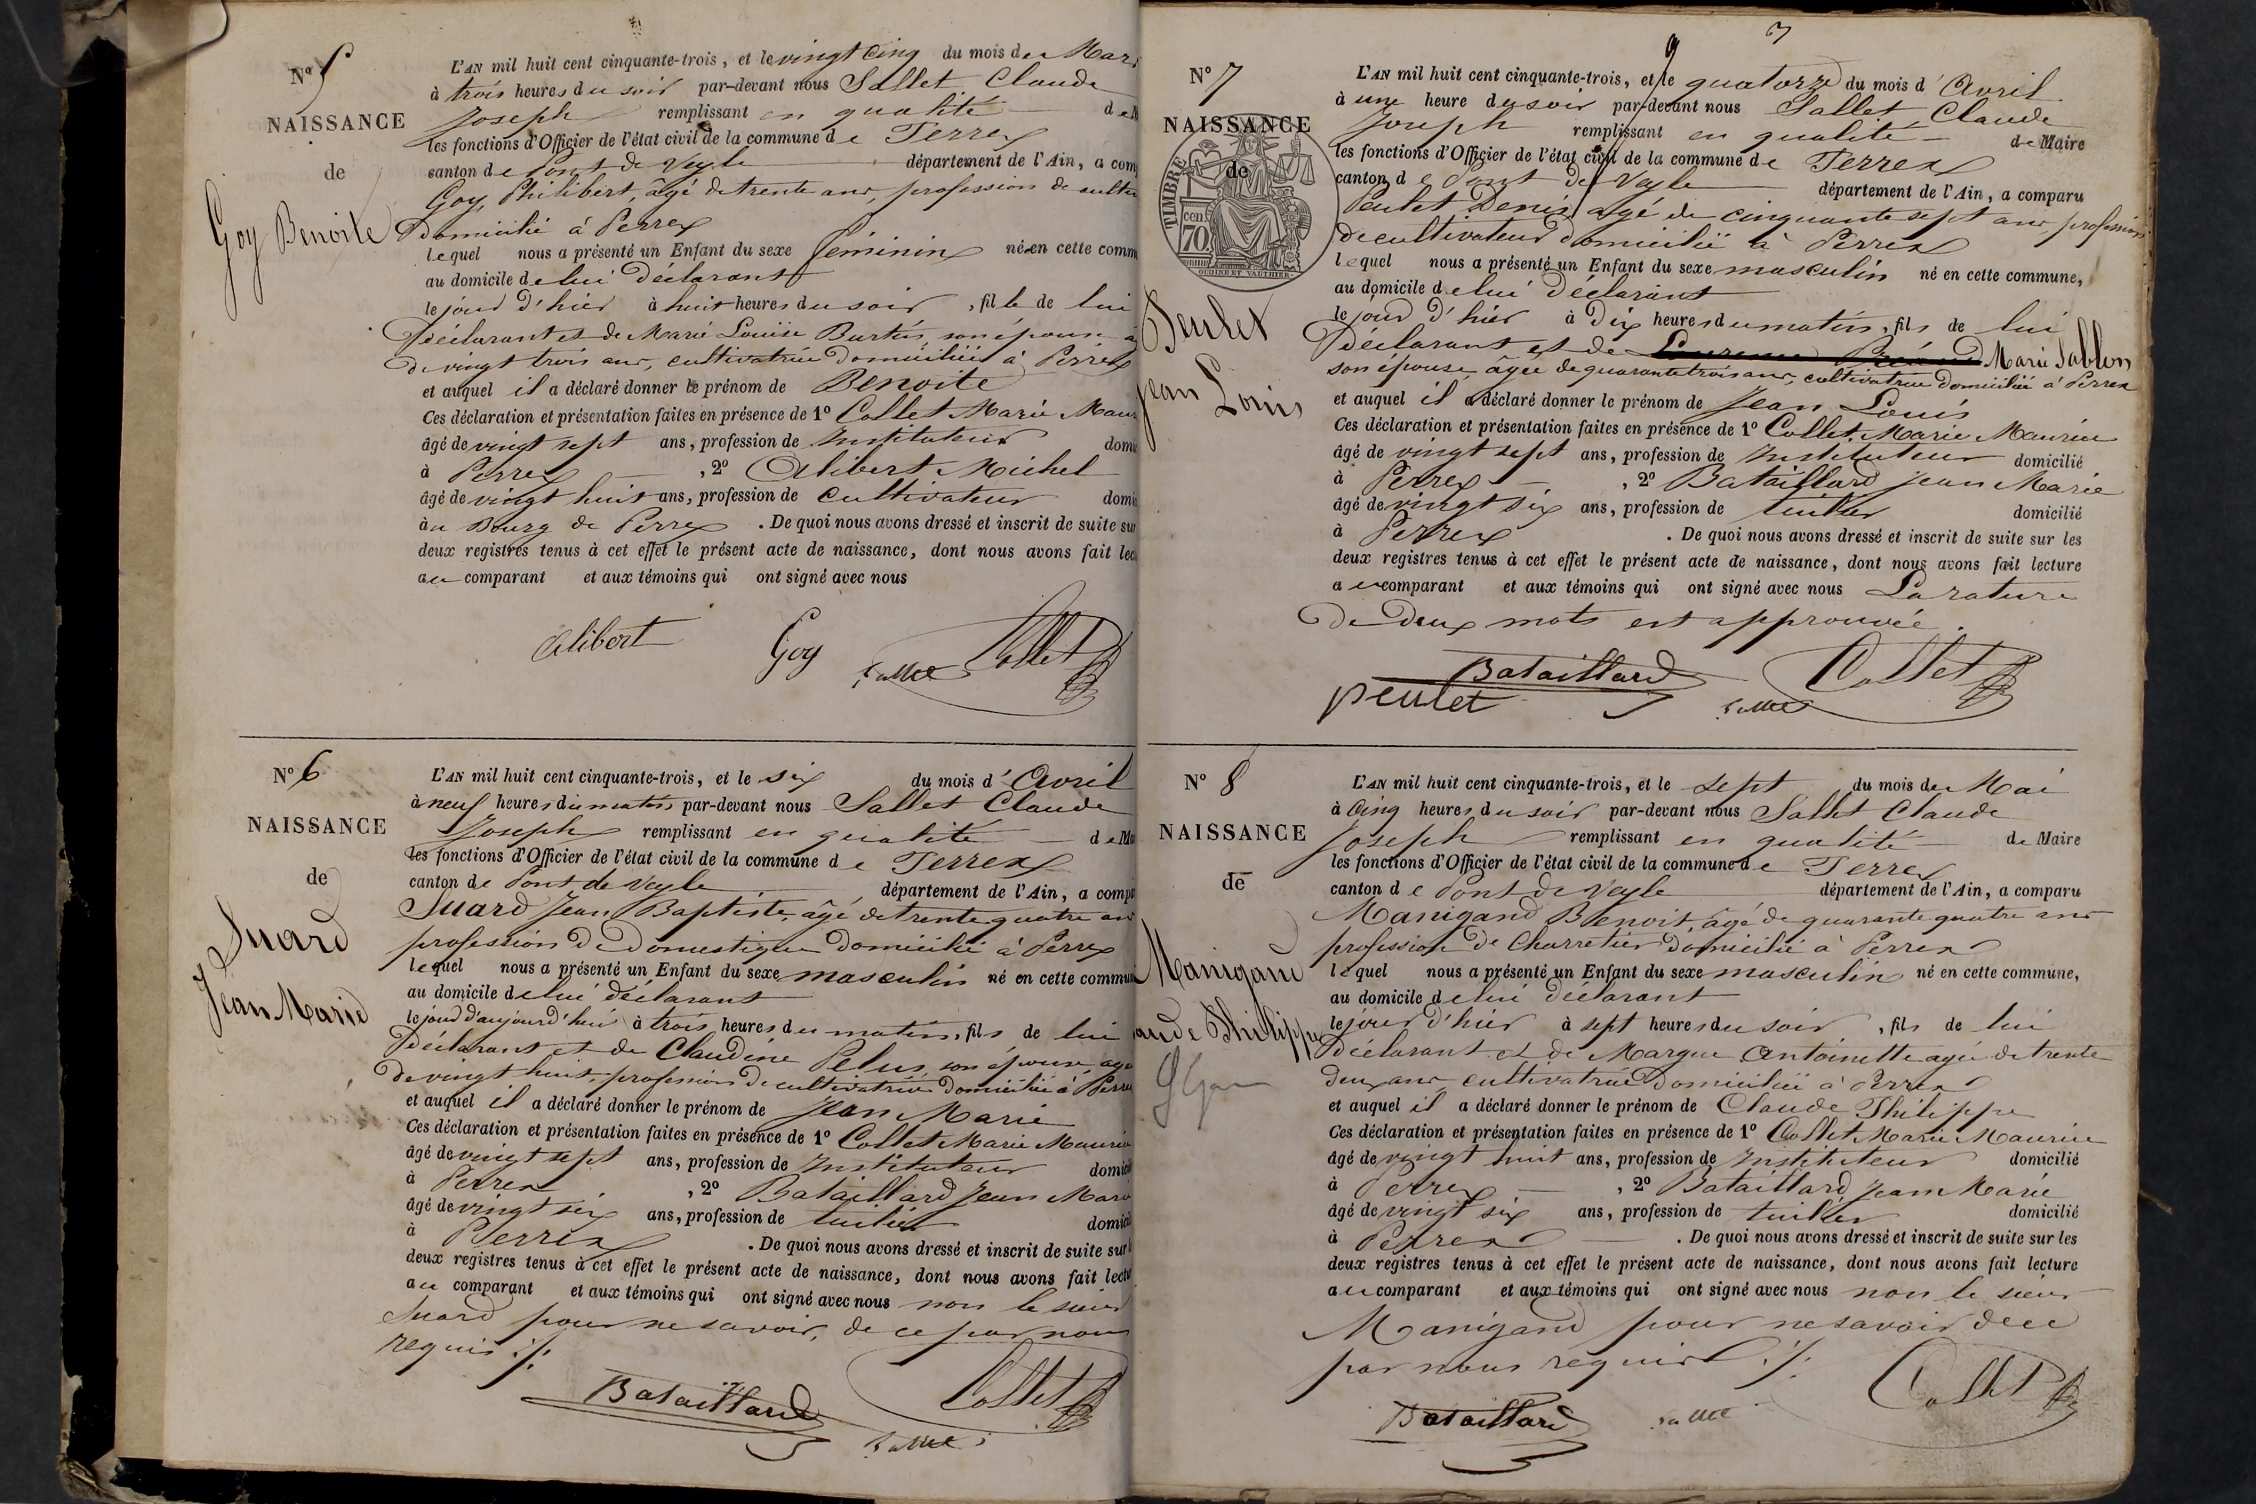 N° 5
NAISSANCE
de
Goy Benoite
L'AN mil huit cent cinquante-trois, et le vingt cinq du mois de Mars
à trois heures du soir par-devant nous Sallet Claude
Joseph remplissant en qualité de M
les fonctions d'Officier de l'état civil de la commune de Perrex
canton de Pont de Veyle département de l'Ain, a com
Goy, Philibert, âgé de trente ans, profession de cultiv
Domicilié à Perrex
lequel nous a présenté un Enfant du sexe féminin né en cette comm
au domicile de lui Déclarant
le jour d'hier à huit heures du soir, fille de lui
Déclarant et de Marie Louise Burtin, son épouse â
de vingt trois ans, cultivatrice Domiciliée à Perrex
et auquel il a déclaré donner le prénom de Benoite
Ces déclaration et présentation faites en présence de 1° Collet Marie Maur
âgé de vingt sept ans, profession de Instituteur domic
à Perrex , 2° Alibert Michel
âgé de vingt huit ans, profession de cultivateur domic
au Bourg de Perrex . De quoi nous avons dressé et inscrit de suite sur
deux registres tenus à cet effet le présent acte de naissance, dont nous avons fait lec
au comparant et aux témoins qui ont signé avec nous
Alibert Goy Sallet Collet
N° 6
NAISSANCE
de
Suard
Jean Marie
L'AN mil huit cent cinquante-trois, et le six du mois d'Avril
à neuf heures du matin par-devant nous Sallet Claude
Joseph remplissant en qualité de Ma
les fonctions d'Officier de l'état civil de la commune de Perrex
canton de Pont de Veyle département de l'Ain, a compa
Suard Jean Baptiste, âgé de trente quatre ans
profession de Domestique Domicilié à Perrex
lequel nous a présenté un Enfant du sexe masculin né en cette commun
au domicile de lui déclarant
le jour d'aujourd'hui à trois heures du matin, fils de lui
Déclarant et de Claudine Pelus, son épouse, agée
de vingt huit, profession de cultivatrice Domiciliée à Perrex
et auquel il a déclaré donner le prénom de Jean Marie
Ces déclaration et présentation faites en présence de 1° Collet Marie Maurice
âgé de vingt sept ans, profession de Instituteur domicil
à Perrex , 2° Bataillard Jean Marie
âgé de vingt six ans, profession de tuilier domicil
à Perrex . De quoi nous avons dressé et inscrit de suite sur l
deux registres tenus à cet effet le présent acte de naissance, dont nous avons fait lectu
au comparant et aux témoins qui ont signé avec nous non le sieur
Suard pour ne savoir, de ce par nous
requis ./.
Bataillard Sallet Collet
9 7
N° 7
NAISSANCE
de
TIMBRE
70 cen
OUDINE ET VAUTHIER
Peulet
Jean Louis
L'AN mil huit cent cinquante-trois, et le quatorze du mois d'Avril
à une heure du soir par-devant nous Sallet Claude
Joseph remplissant en qualité de Maire
les fonctions d'Officier de l'état civil de la commune de Perrex
canton de Pont de Veyle département de l'Ain, a comparu
Peulet Denis, agé de cinquante sept ans profession
de cultivateur Domicilié à Perrex
lequel nous a présenté un Enfant du sexe masculin né en cette commune,
au domicile de lui Déclarant
le jour d'hier à Dix heures du matin, fils de lui
Déclarant et de Marie Sablon
son épouse, âgée de quarante trois ans, cultivatrice Domiciliée à Perrex
et auquel il a déclaré donner le prénom de Jean Louis
Ces déclaration et présentation faites en présence de 1° Collet, Marie Maurice
âgé de vingt sept ans, profession de Instituteur domicilié
à Perrex , 2° Bataillard Jean Marie
âgé de vingt six ans, profession de tuilier domicilié
à Perrex . De quoi nous avons dressé et inscrit de suite sur les
deux registres tenus à cet effet le présent acte de naissance, dont nous avons fait lecture
au comparant et aux témoins qui ont signé avec nous La rature
de Deux mots est approuvée.
Bataillard Collet
peulet Sallet
N° 8
NAISSANCE
de
Manigand
aude Philippe
L'AN mil huit cent cinquante-trois, et le sept du mois de Mai
à cinq heures du soir par-devant nous Sallet Claude
Joseph remplissant en qualité de Maire
les fonctions d'Officier de l'état civil de la commune de Perrex
canton de Pont de Veyle département de l'Ain, a comparu
Manigand Benoit, âgé de quarante quatre ans
profession de Charretier Domicilié à Perrex
lequel nous a présenté un Enfant du sexe masculin né en cette commune,
au domicile de lui déclarant
le jour d'hier à sept heures du soir, fils de lui
Déclarant et de Margue Antoinette agée de trente
deux ans cultivatrice Domiciliée à Perrex
et auquel il a déclaré donner le prénom de Claude Philippe
Ces déclaration et présentation faites en présence de 1° Collet Marie Maurice
âgé de vingt huit ans, profession de Instituteur domicilié
à Perrex , 2° Bataillard Jean Marie
âgé de vingt six ans, profession de tuilier domicilié
à Perrex . De quoi nous avons dressé et inscrit de suite sur les
deux registres tenus à cet effet le présent acte de naissance, dont nous avons fait lecture
au comparant et aux témoins qui ont signé avec nous non le sieur
Manigand pour ne savoir de ce
par nous requis ./.
Bataillard Sallet Collet